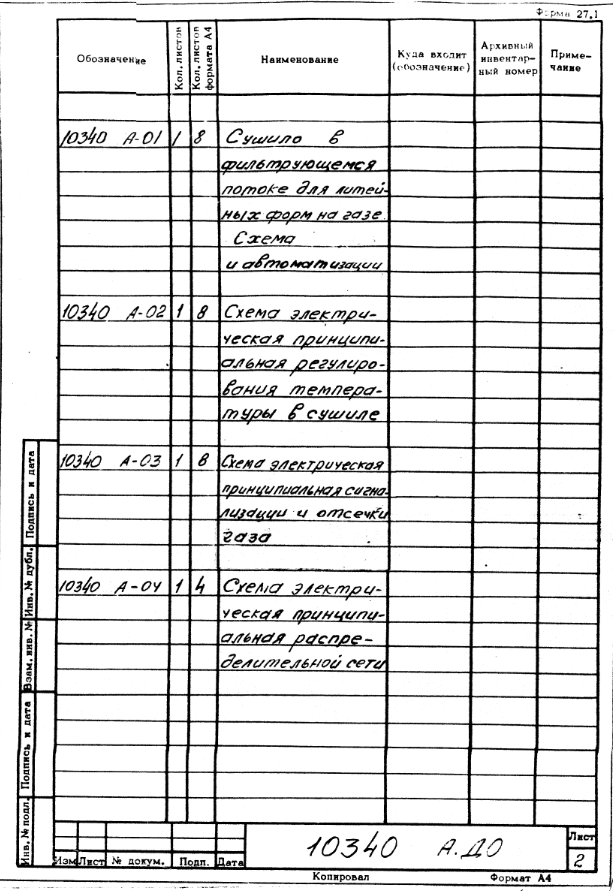 Форма 27.1
Обозначение Кол. листов Кол. листов формата А4 Наименование Куда входит (обозначение) Архивный инвентарный номер Примечание
10340 А-01 1 8 Сушило в
фильтрующемся
потоке для литей-
ных форм на газе.
Схема
и автоматизации
10340 А-02 1 8 Схема электри-
ческая принципи-
альная регулиро-
вания темпера-
туры в сушиле
10340 А-03 1 8 Схема электрическая
принципиальная сигна-
лизации и отсечки
газа
10340 А-04 1 4 Схема электри-
ческая принципи-
альная распре-
делительной сети
Инв. № подл. Подпись и дата Взам. инв. № Инв. № дубл. Подпись и дата
Изм Лист № докум. Подп. Дата
10340 А.ДО
Лист
2
Копировал Формат А4